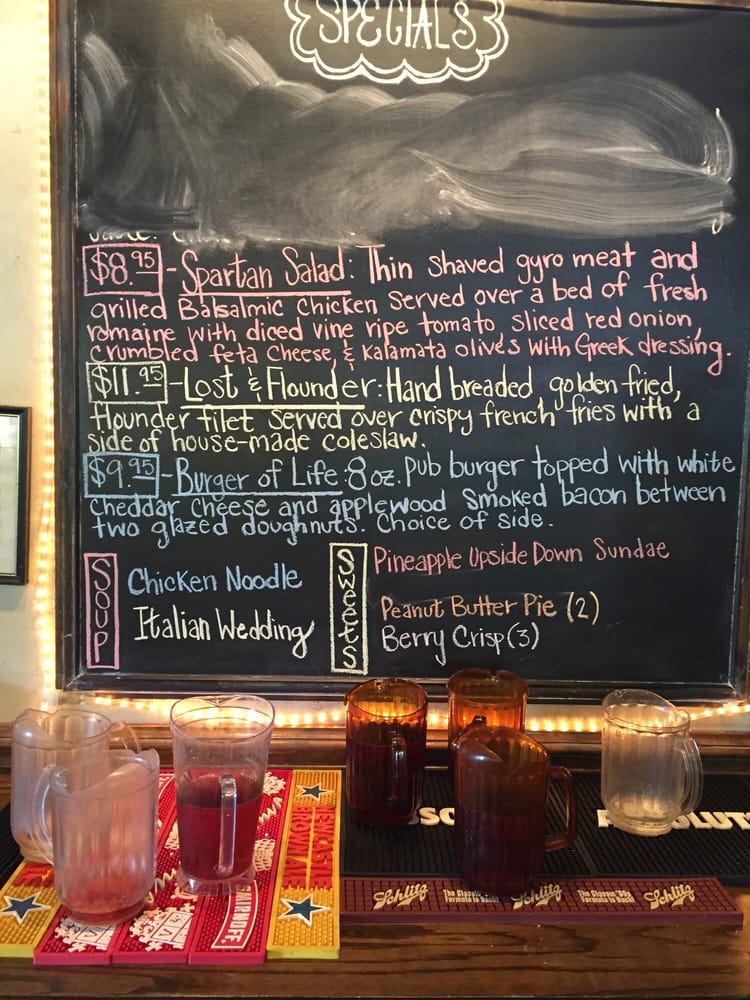 SPECIALS
$8.95 - Spartan Salad: Thin shaved gyro meat and
grilled Balsalmic Chicken served over a bed of fresh
romaine with diced vine ripe tomato, sliced red onion,
crumbled feta cheese, & Kalamata olives with Greek dressing.
$11.95 - Lost & Flounder: Hand breaded, golden fried,
flounder filet served over crispy french fries with a
side of house-made coleslaw.
$9.95 - Burger of Life: 8 oz. Pub burger topped with white
cheddar cheese and applewood smoked bacon between
two glazed doughnuts. Choice of side.
SOUP
Chicken Noodle
Italian Wedding
SweetS
Pineapple Upside Down Sundae
Peanut Butter Pie (2)
Berry Crisp (3)
NEWCASTLE
BROWN ALE
SMIRNOFF
ABSOLUT
Schlitz The Classic '60s Formula is Back! Schlitz The Classic '60s Formula is Back! Schlitz